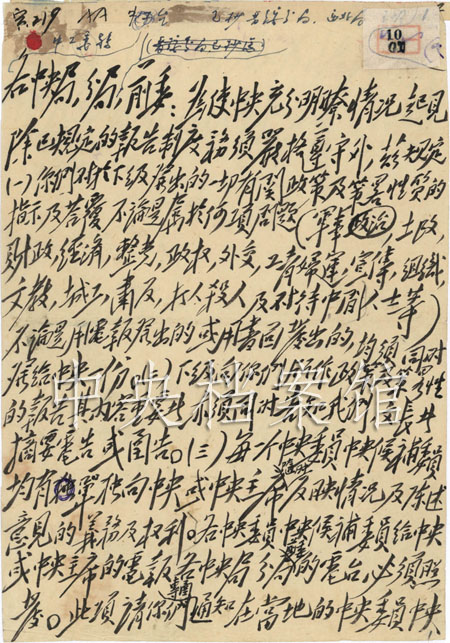 各中央局,分局,前委:为使中央充分明瞭情况起见
除已规定的报告制度务须严格遵守外,兹规定
(一)你们对于下级发出的一切有关政策及策略性质的
指示及答覆不论是属于何项问题(军事,政治,土改,
财政,经济,整党,政权,外交,工青妇运,宣传,组织,
文教,城工,肃反,打人杀人及对待中间人士等)
不论是用电报发出的或用书面发出的均须同时
发给中央一份。(二)下级向你们所作政策及策略性
的报告其内容重要者亦须同时告知我们。
摘要电告或图告。(三)每一个中央委员中央候补委员
均有单独向中央或中央主席反映情况及陈述
意见的义务及权利。各中央委员中央候补委员给中央
或中央主席的电报各中央局分局的电台必须照
发。此项请你们转告通知在当地的中央委员中央
中央档案馆